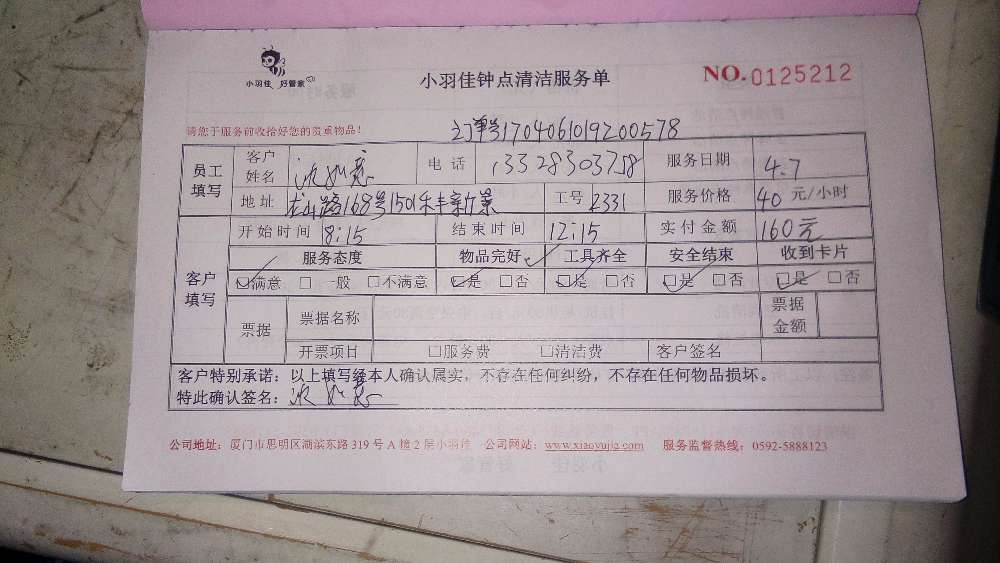 小羽佳 好管家
小羽佳钟点清洁服务单
NO.0125212
请您于服务前收拾好您的贵重物品!
订单号1704061019200578
员工填写 客户姓名 电话 13328303758 服务日期 4.7
地址 168号1501 工号 2331 服务价格 40 元/小时
客户填写 开始时间 8:15 结束时间 12:15 实付金额 160元
服务态度 物品完好 工具齐全 安全结束 收到卡片
☑满意 □一般 □不满意 ☑是 □否 ☑是 □否 ☑是 □否 ☑是 □否
票据 票据名称 票据金额
开票项目 □服务费 □清洁费 客户签名
客户特别承诺:以上填写经本人确认属实,不存在任何纠纷,不存在任何物品损坏。
特此确认签名:
公司地址:厦门市思明区湖滨东路319号A幢2层小羽佳 公司网站:www.xiaoyujia.com 服务监督热线:0592-5888123